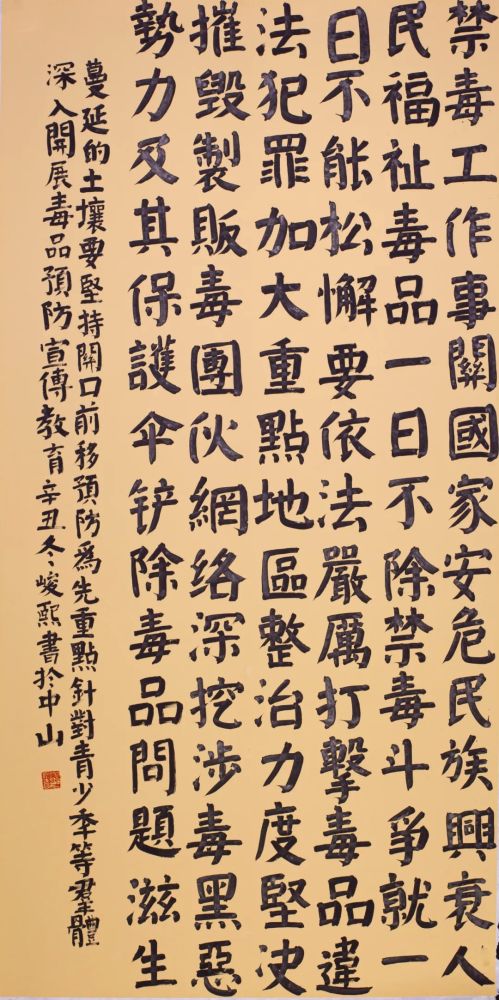 禁毒工作事關國家安危民族興衰人
民福祉毒品一日不除禁毒斗爭就一
日不能松懈要依法嚴厲打擊毒品違
法犯罪加大重點地區整治力度堅決
摧毀製販毒團伙網络深挖涉毒黑惡
勢力及其保護伞铲除毒品問題滋生
蔓延的土壤要堅持關口前移預防為先重點針對青少年等羣體
深入開展毒品預防宣傳教育辛丑冬、峻熙書於中山